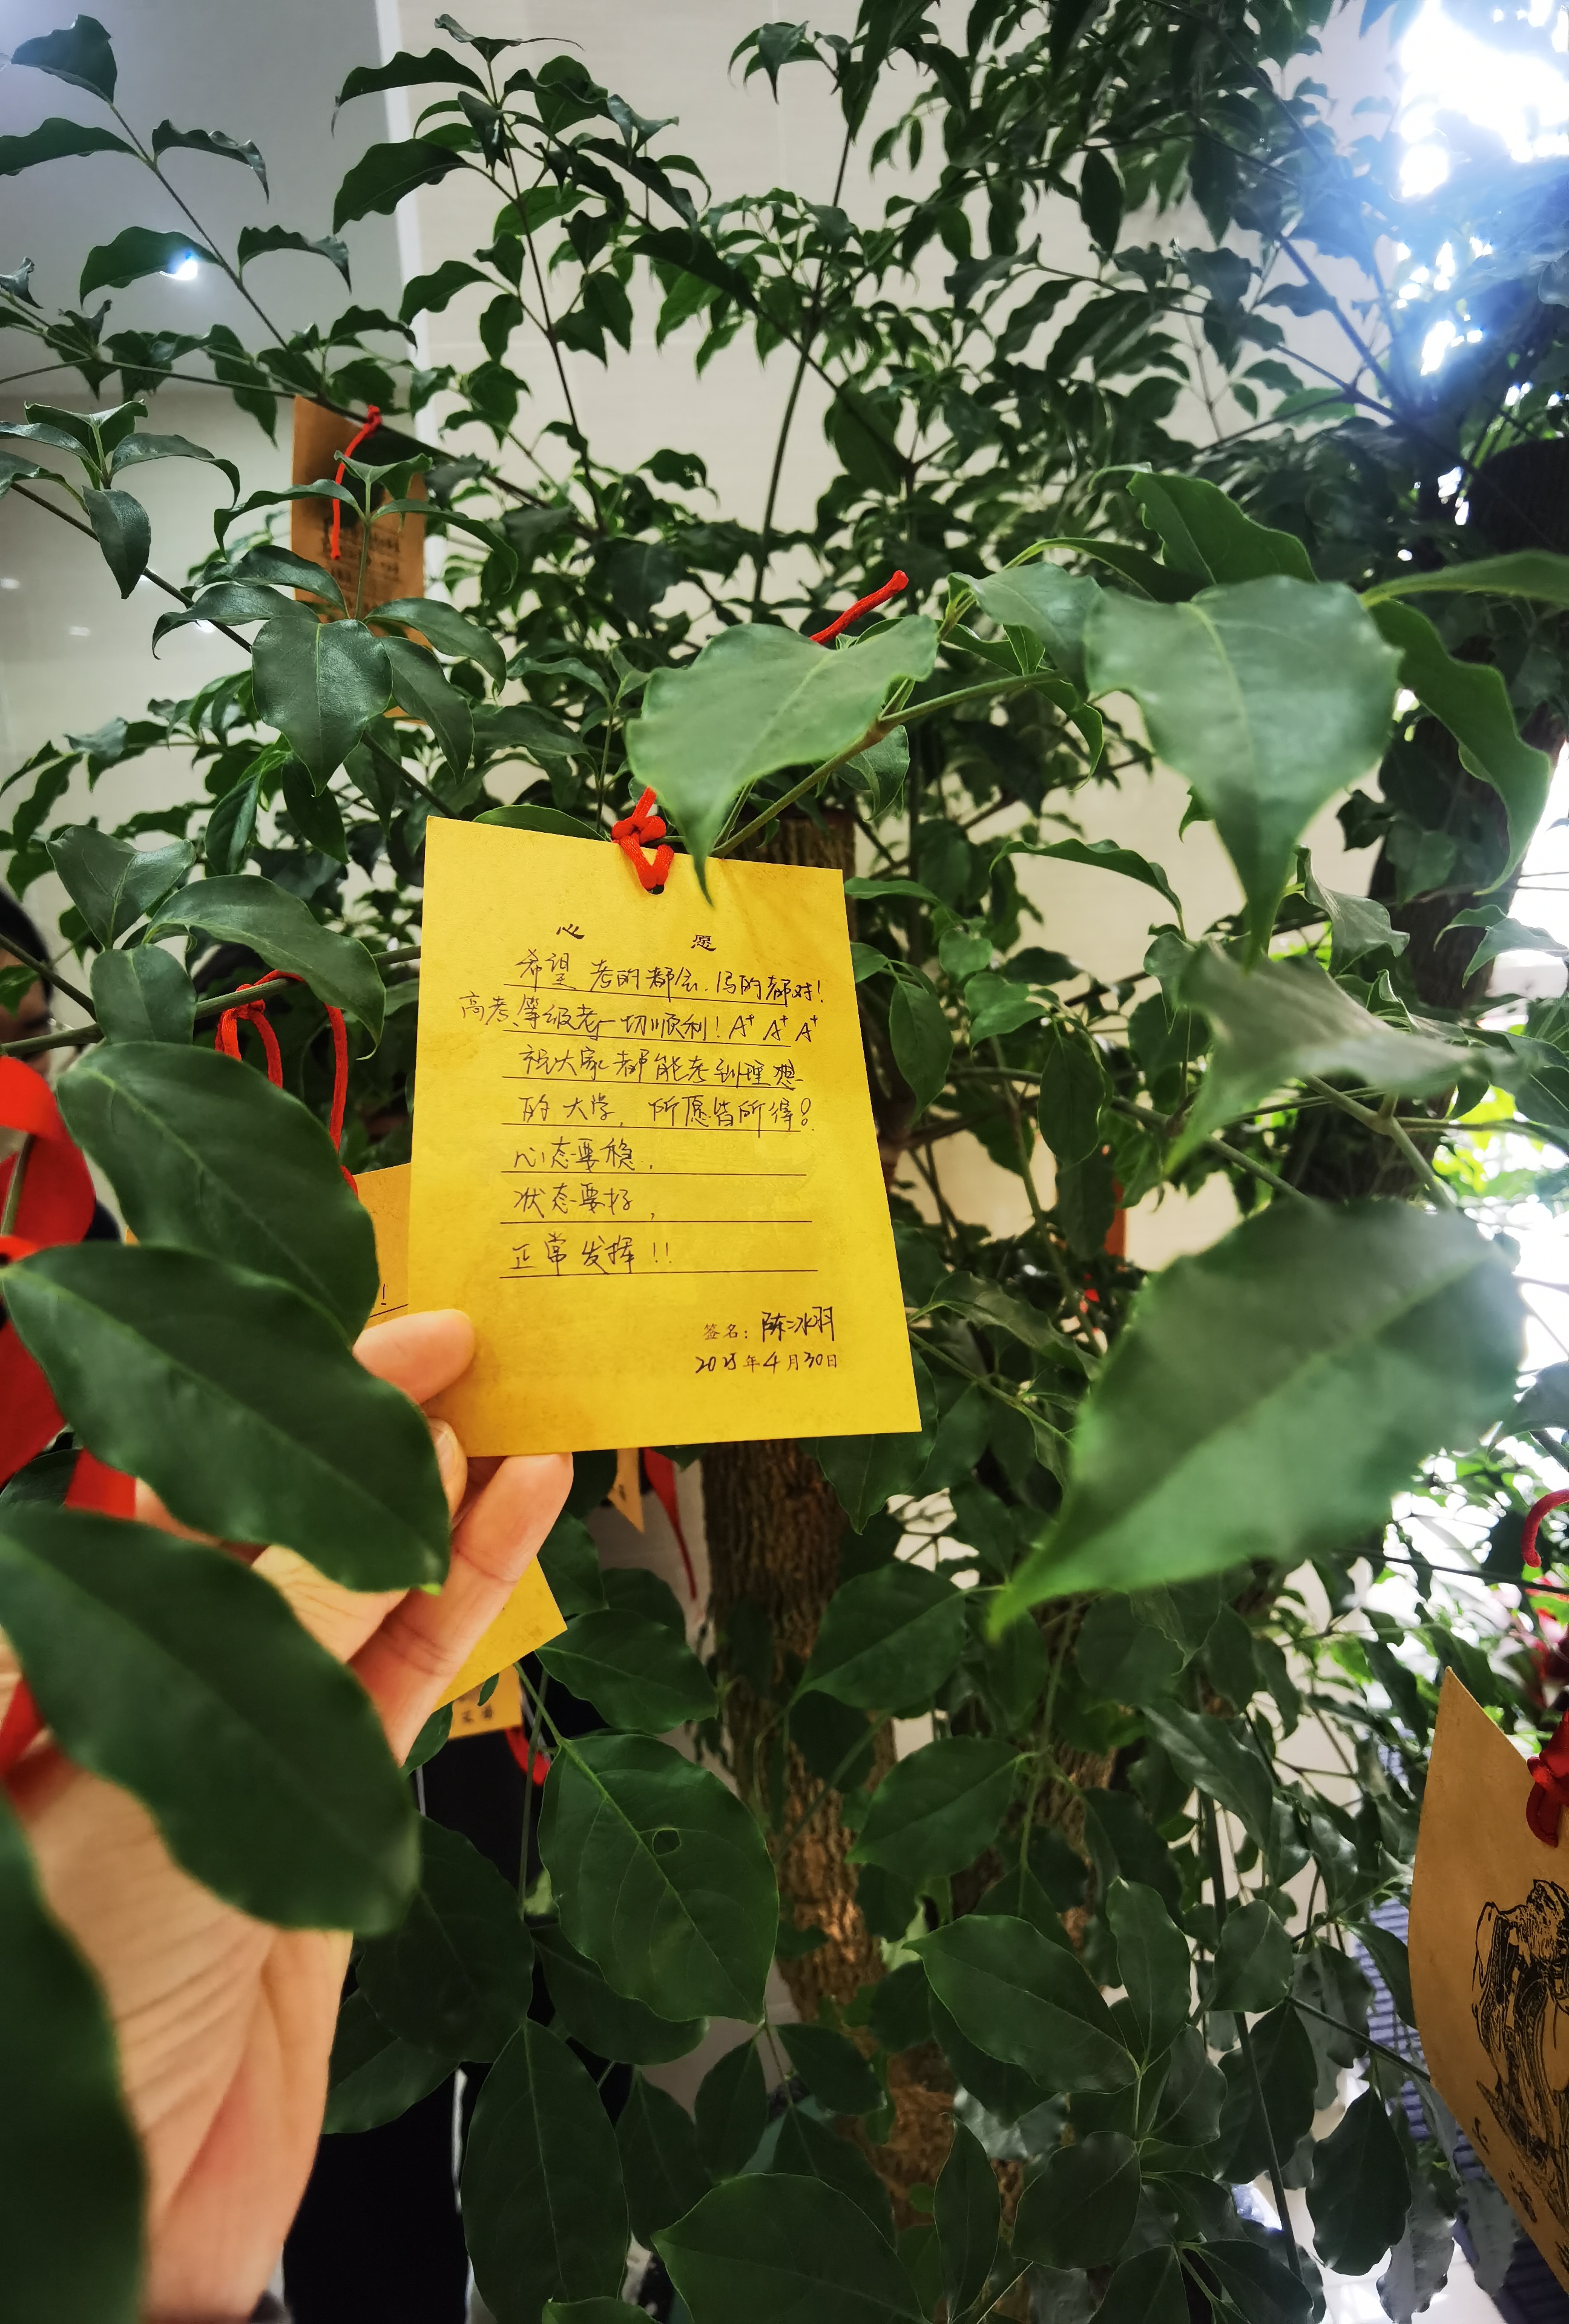 心 愿
希望考的都会.写的都对!
高考、等级考一切顺利!A⁺ A⁺ A⁺
祝大家都能考到理想
的大学,所愿皆所得!
心态要稳,
状态要好,
正常发挥!!
签名:陈冰羽
年4月30日